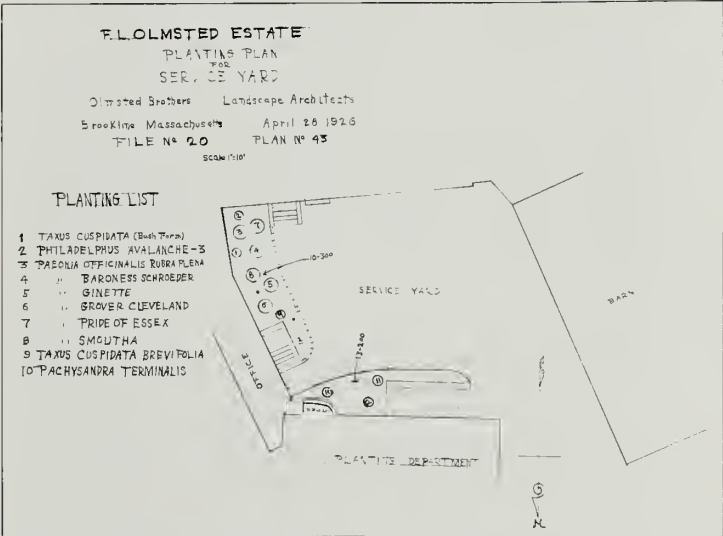 F.L. OLMSTED ESTATE
PLANTING PLAN
FOR
SERVICE YARD
Olmsted Brothers Landscape Architects
Brookline Massachusetts April 28 1926
FILE Nº 20 PLAN Nº 43
SCALE 1"=10'
PLANTING LIST
1 TAXUS CUSPIDATA (Bush Form)
2 PHILADELPHUS AVALANCHE-3
3 PAEONIA OFFICINALIS RUBRA PLENA
4 " BARONESS SCHROEDER
5 " GINETTE
6 " GROVER CLEVELAND
7 " PRIDE OF ESSEX
8 " SMOUTHA
9 TAXUS CUSPIDATA BREVIFOLIA
10 PACHYSANDRA TERMINALIS
2
3
7
1
4
10-300
8
5
6
SERVICE YARD
BARN
OFFICE
13-200
11
PLANTING DEPARTMENT
N